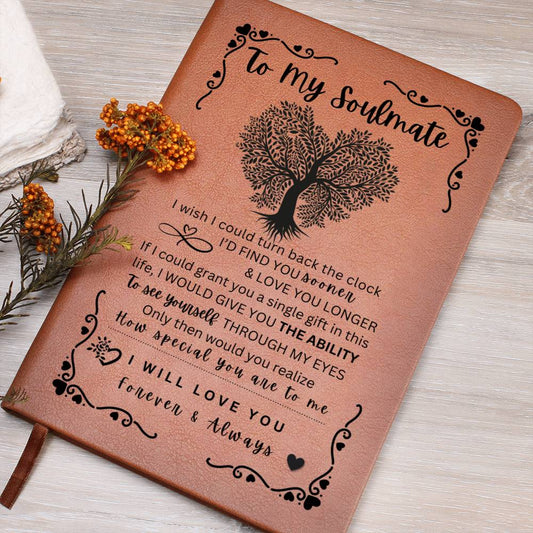 To My Soulmate
I wish I could turn back the clock
I'D FIND YOU sooner
& LOVE YOU LONGER
If I could grant you a single gift in this
life, I WOULD GIVE YOU THE ABILITY
To see yourself THROUGH MY EYES
Only then would you realize
How special you are to me
I WILL LOVE YOU
Forever & Always